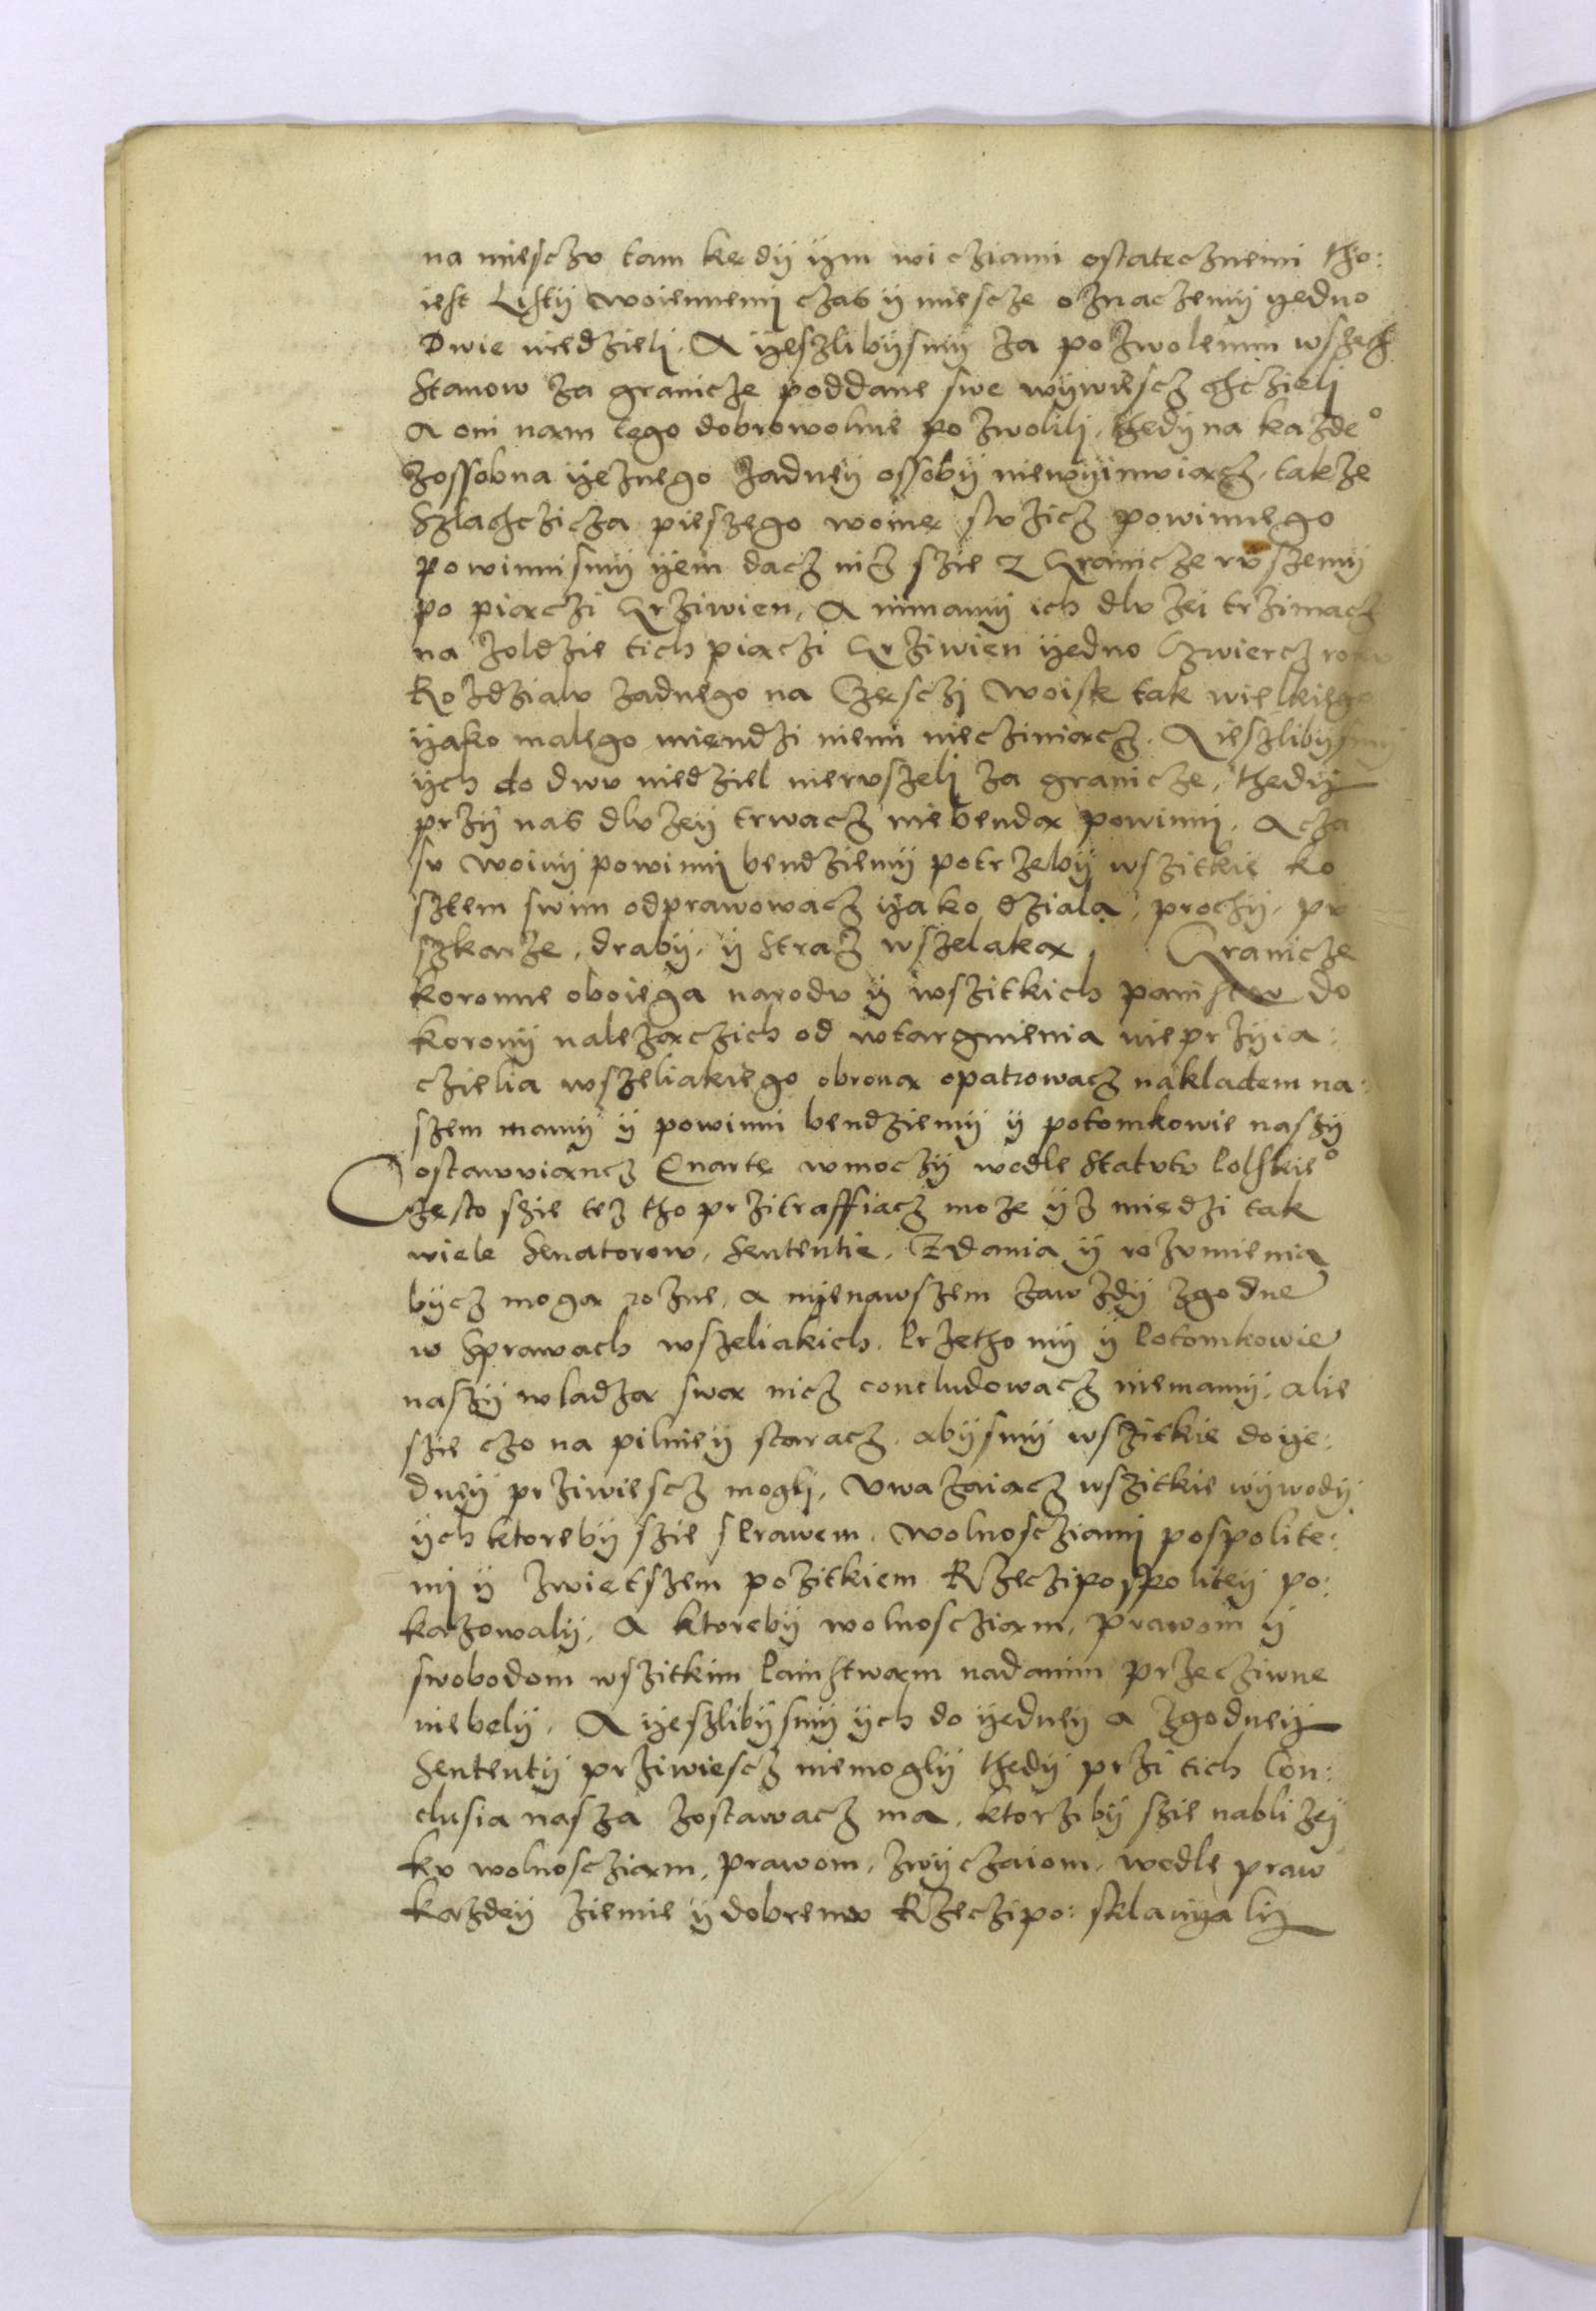 na miesczv tam kędÿ ÿm wicziami ostatecznemi tho:
iest Listÿ woiennemj czas ÿ miescze oznaczemÿ ÿedno
Dwie niedzielj. A ÿeszlibÿsmÿ za pozwolenim wszech
Stanow za granicze poddane swe wÿwiescz chczielj
A oni nam tego dobrowolnie pozwolilj, thedÿ na kazde°
zossobna ÿeznego zadneÿ ossobÿ niewÿimviącz, takze
Szlachczicza pieszego woinę slvzicz powinnego
powinnismÿ ÿem dacz niz szie z Granicze rvszemÿ
po piączi Grziwien, A nimamÿ ich dlvzei trzimacz
na zoldzie tich piączi Grziwien ÿedno Czwiercz rokv
Rozdzialv zadnego na Częsczj woisk tak wielkiego
ÿako malego miendzi niemi nieczniącz. A ieszlibÿsmÿ
ÿch do dwv niedziel niervszelj za granicze, thedÿ
przÿ nas dlvzeÿ trwacz niebendą powinnj. A cza
sv woinÿ powinnj bendziemÿ potrzebÿ wszitkie ko
sztem swim odprawowacz ÿako dziala, prochÿ, pv
szkarze, drabÿ, ÿ straz wszelaką. Granicze
koronne oboiega narodv ÿ wszitkich painstw do
koronÿ nalezączich od wtargnienia nieprzÿia:
czielia wszeliakiego obroną opatrowacz nakladem na:
szem mamÿ ÿ powinni bendziemÿ ÿ potomkowie naszÿ
ostawviancz Quartę wmoczÿ wedle Statvtv Polskie°
Często szie tez tho przitraffiacz moze ÿz miedzi tak
wiele Senatorow, Sententie, Zdania ÿ rozvmienia
bÿcz mogą rozne, a nÿenawszem zawzdÿ zgodne
w Sprawach wszeliakich. Przetho mÿ ÿ Potomkowie
naszÿ wladzą swą nicz concludowacz niemamÿ, alie
szie czo na pilnieÿ staracz, abÿsmÿ wszitkie do ÿe:
dneÿ prziwiescz moglj, vwazaiącz wszitkie wÿwodÿ
ÿch ktorebÿ szie s Prawem, wolnosczianj pospolite:
mj ÿ zwietszem pozitkiem Rzeczipospoliteÿ po:
kazowalÿ, A ktorebÿ wolnoscziąm, prawom ÿ
swobodom wszitkim Painstwąm nadanim przecziwne
niebelÿ. A ÿeszlibÿsmÿ ÿch do ÿedneÿ a zgodneÿ
Sententÿ prziwiescz niemoglÿ thedÿ przi tich Con:
clusia nasza zostawacz ma, ktorzibÿ szie nablizeÿ
kv wolnoscziąm, prawom, zwÿczaiom, wedle praw
kazdeÿ ziemie ÿ dobremv Rzeczipo: sklanÿalÿ